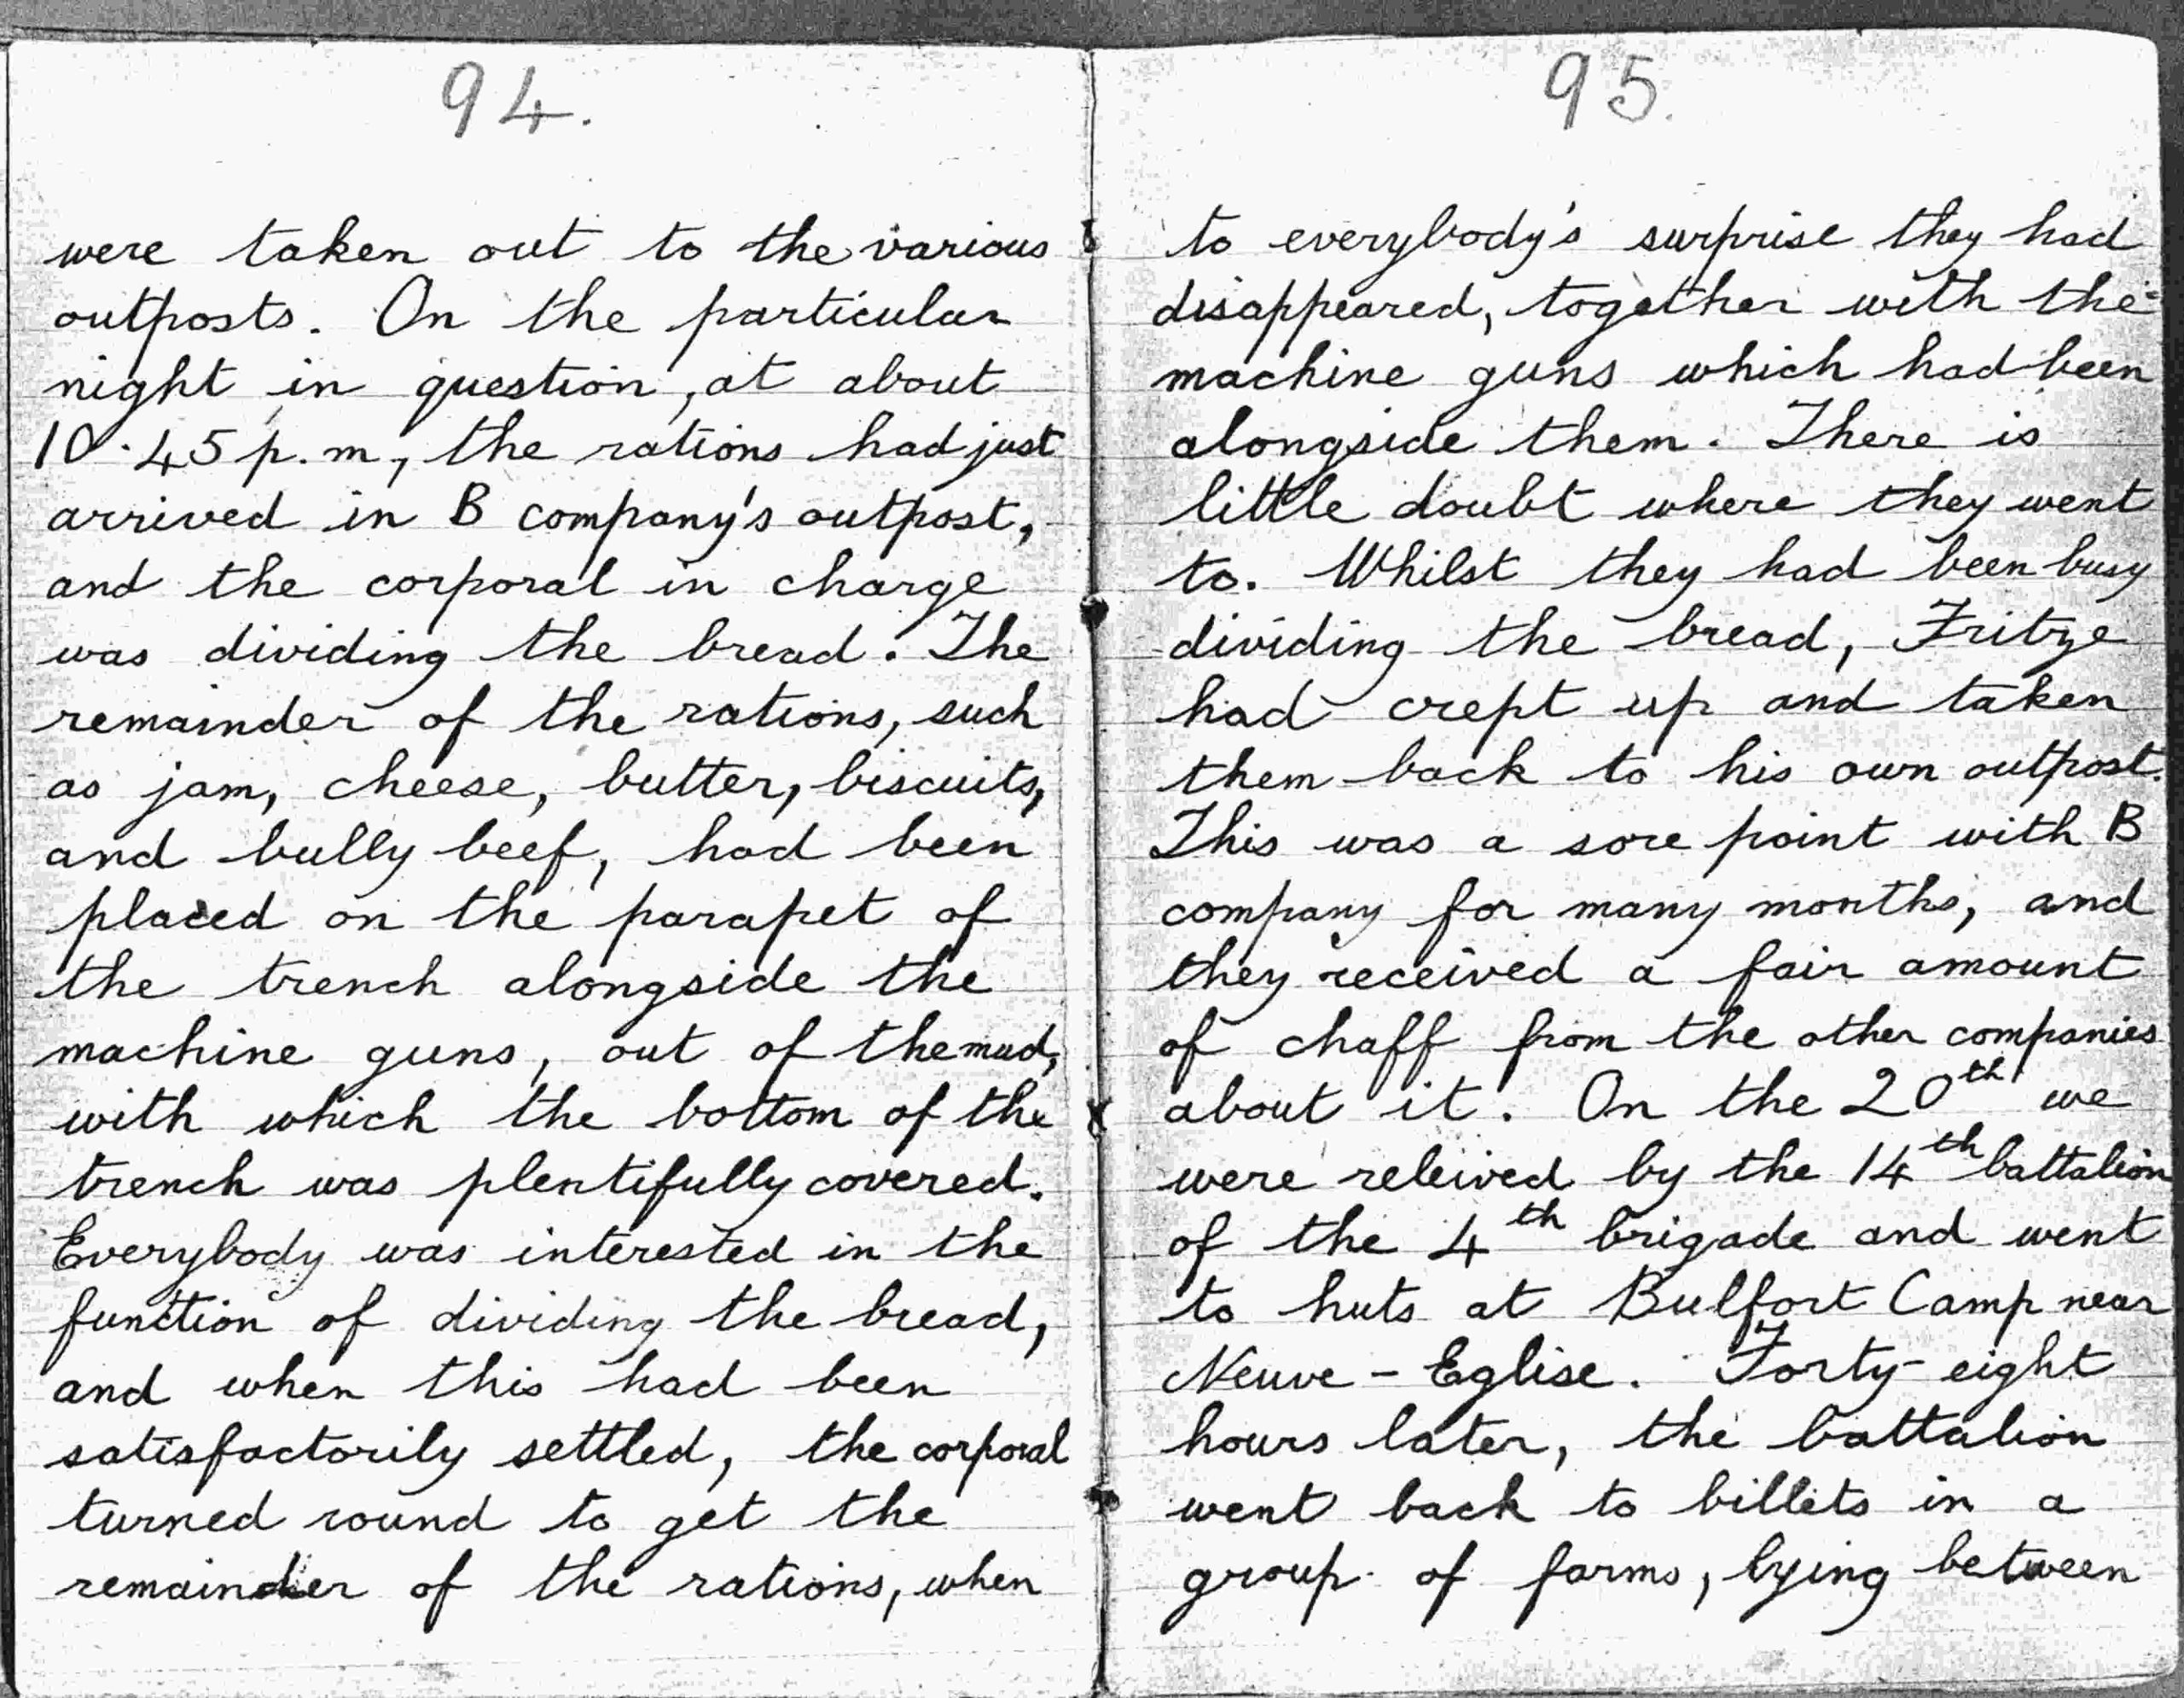 94.
were taken out to the various
outposts. On the particular
night in question, at about
10.45 p.m, the rations had just
arrived in B company's outpost,
and the corporal in charge
was dividing the bread. The
remainder of the rations, such
as jam, cheese, butter, biscuits,
and bully beef, had been
placed on the parapet of
the trench alongside the
machine guns, out of the mud,
with which the bottom of the
trench was plentifully covered.
Everybody was interested in the
function of dividing the bread,
and when this had been
satisfactorily settled, the corporal
turned round to get the
remainder of the rations, when
95.
to everybody's surprise they had
disappeared, together with the
machine guns which had been
alongside them. There is
little doubt where they went
to. Whilst they had been busy
dividing the bread, Fritze
had crept up and taken
them back to his own outpost.
This was a sore point with B
company for many months, and
they received a fair amount
of chaff from the other companies
about it. On the 20th we
were releived by the 14th battalion
of the 4th brigade and went
to huts at Bulfort Camp near
Neuve-Eglise. Forty-eight
hours later, the battalion
went back to billets in a
group of farms, lying between